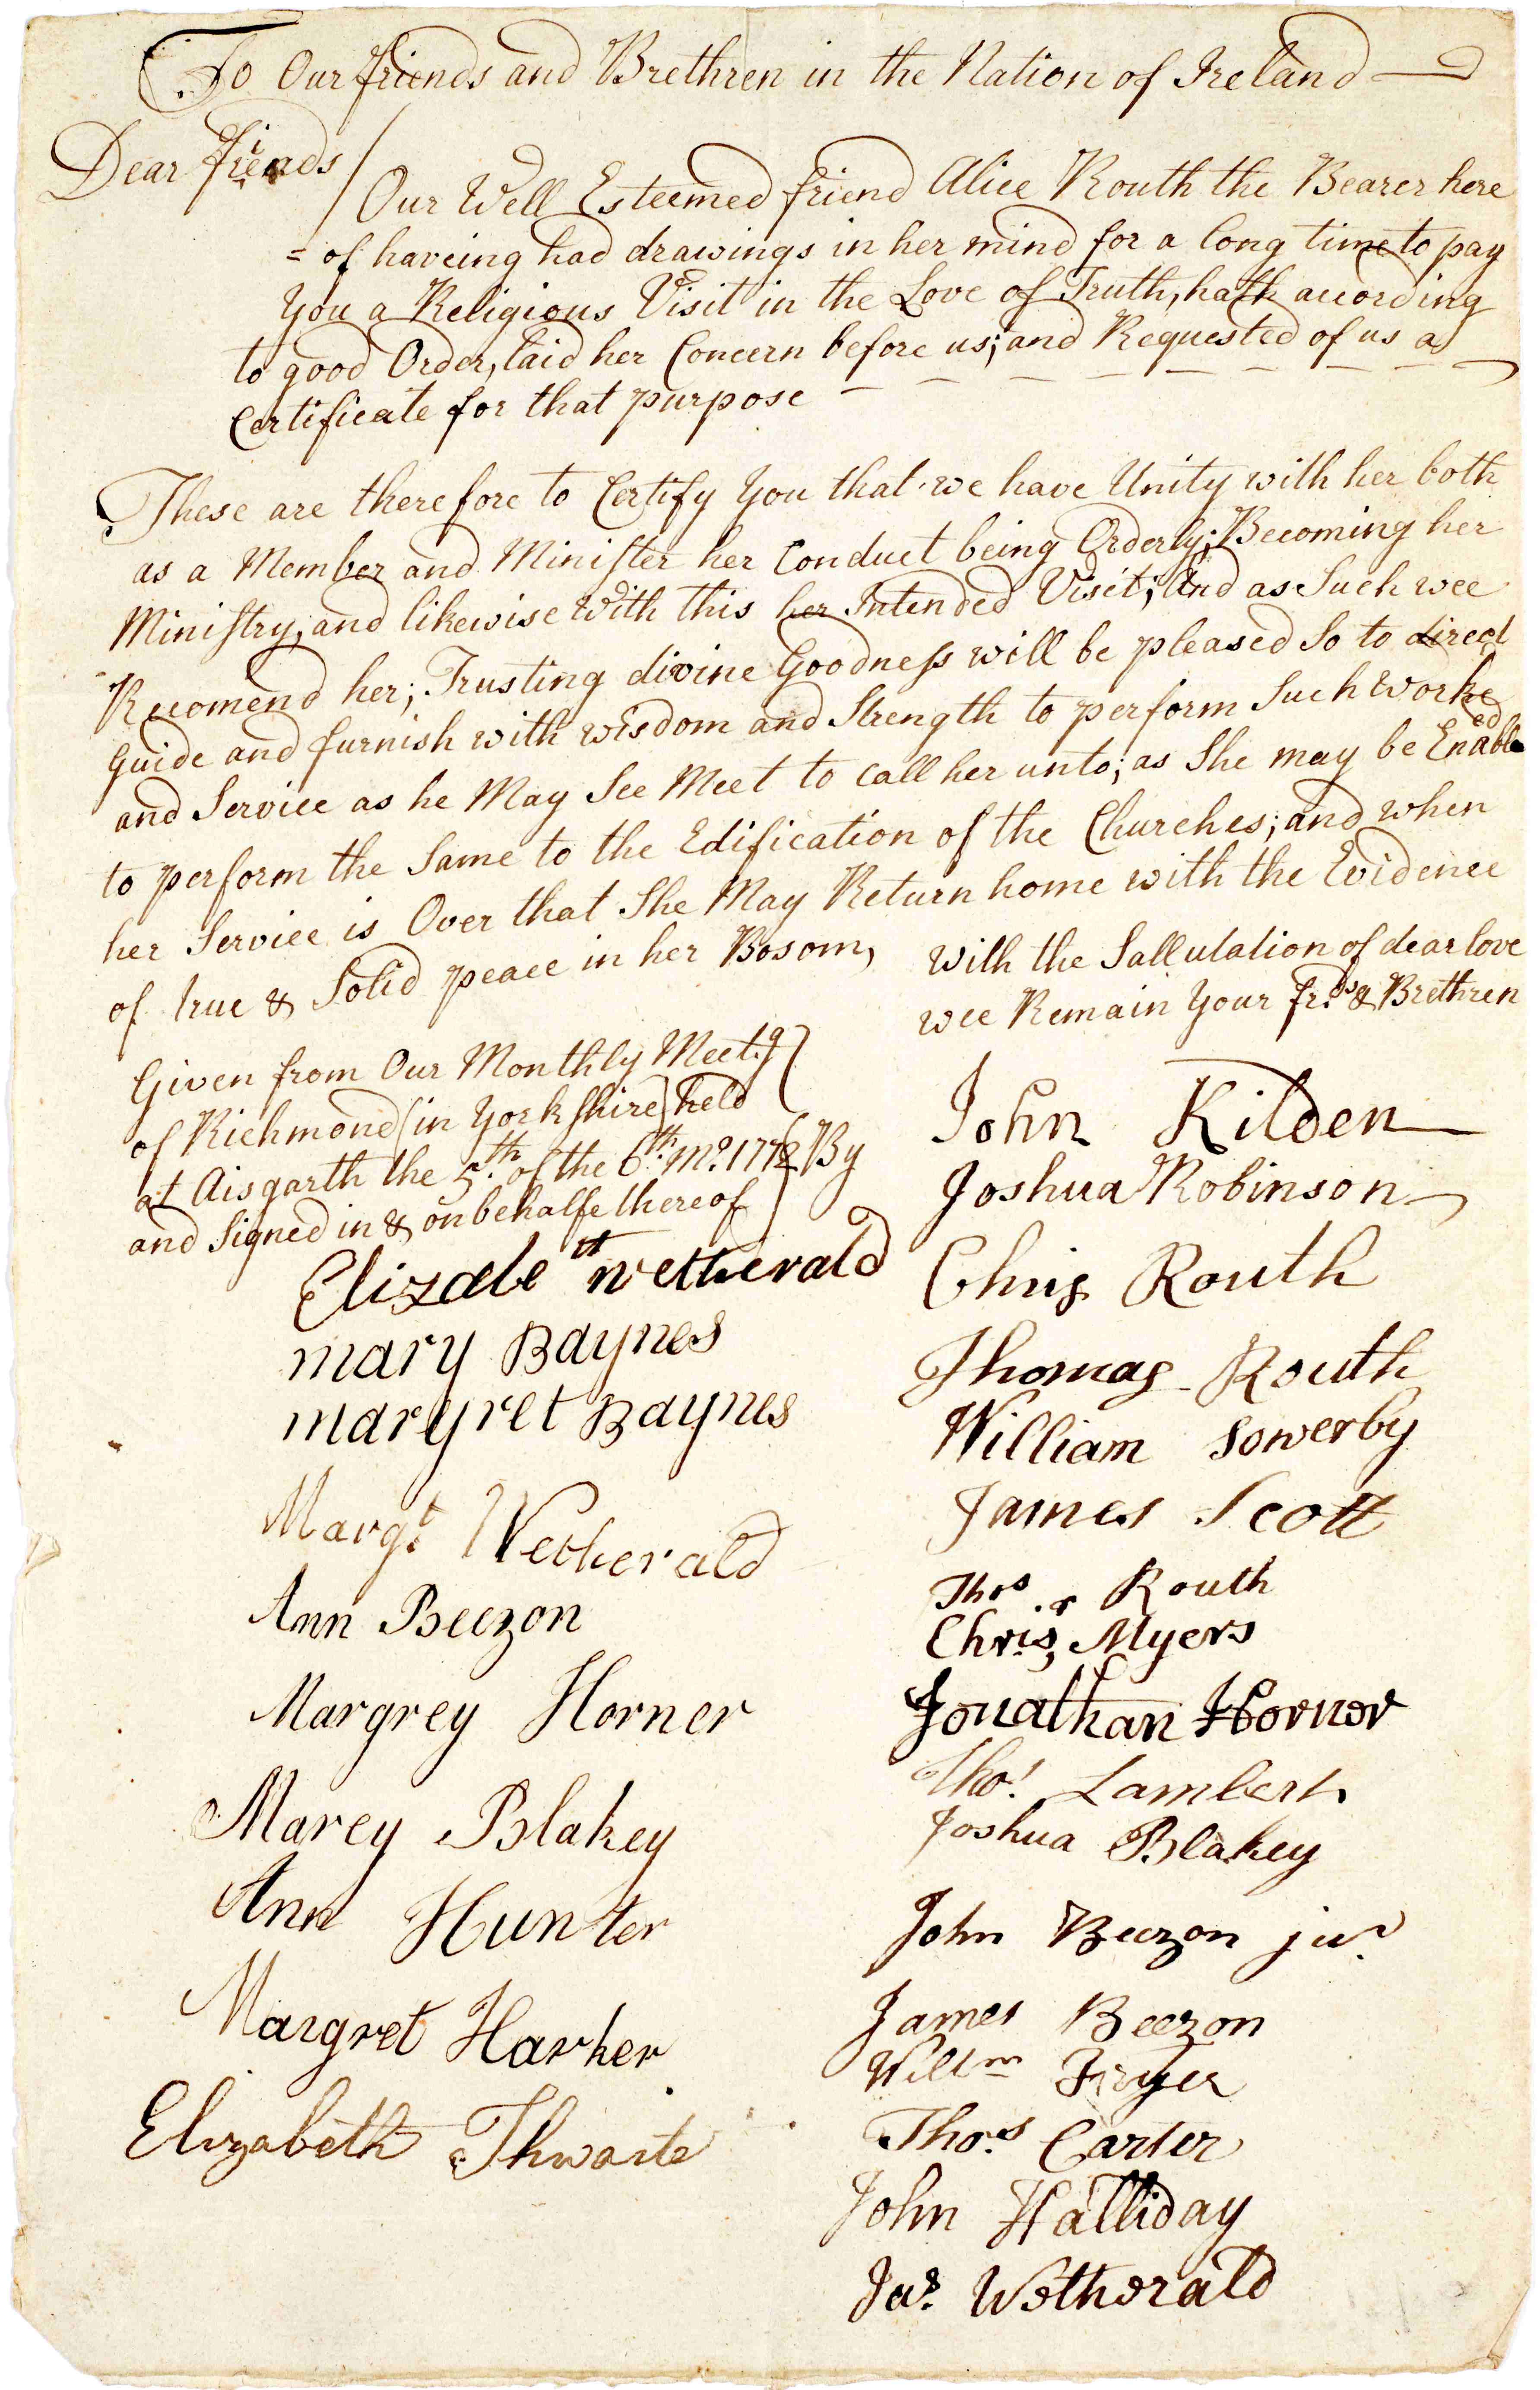 To Our friends and Brethren in the Nation of Ireland
Dear friends
Our Well Esteemed friend Alice Routh the Bearer here
= of haveing had drawings in her mind for a long time to pay
You a Religious Visit in the Love of Truth, hath according
to good Order, laid her Concern before us; and Requested of us a
Certificate for that purpose
These are therefore to Certify You that we have Unity with her both
as a Member and Minister her Conduct being Orderly; Becoming her
Ministry; and likewise With this her Intended Visit; And as Such wee
Recomend her; Trusting divine Goodness will be pleased So to direct
Guide and furnish with wisdom and Strength to perform Such Worke
and Service as he May See Meet to call her unto; as She may be Enabled
to perform the Same to the Edification of the Churches; and when
her Service is Over that She May Return home with the Evidence
of true & Solid peace in her Bosom,
with the Sallutation of dear love
wee Remain Your frds & Brethren
Given from Our Monthly Meetg
of Richmond [in Yorkshire] held
at Aisgarth the 5th of the 6th Mo 1772 By
and Signed in & on behalfe thereof
John Kilden
Joshua Robinson
Elizabeth Wetherald
Chris Routh
Mary Baynes
Thomas Routh
Margret Baynes
William Sowerby
Margt Wetherald
James Scott
Ann Beezon
Thos Routh
Chrisr Myers
Margrey Horner
Jonathan Hornor
Thos Lambert
Marey Blakey
Joshua Blakey
Ann Hunter
John Beezon junr
Margret Harker
James Beezon
Willm Fryer
Elizabeth Thwaite
Thos Carter
John Halliday
Jas Wetherald